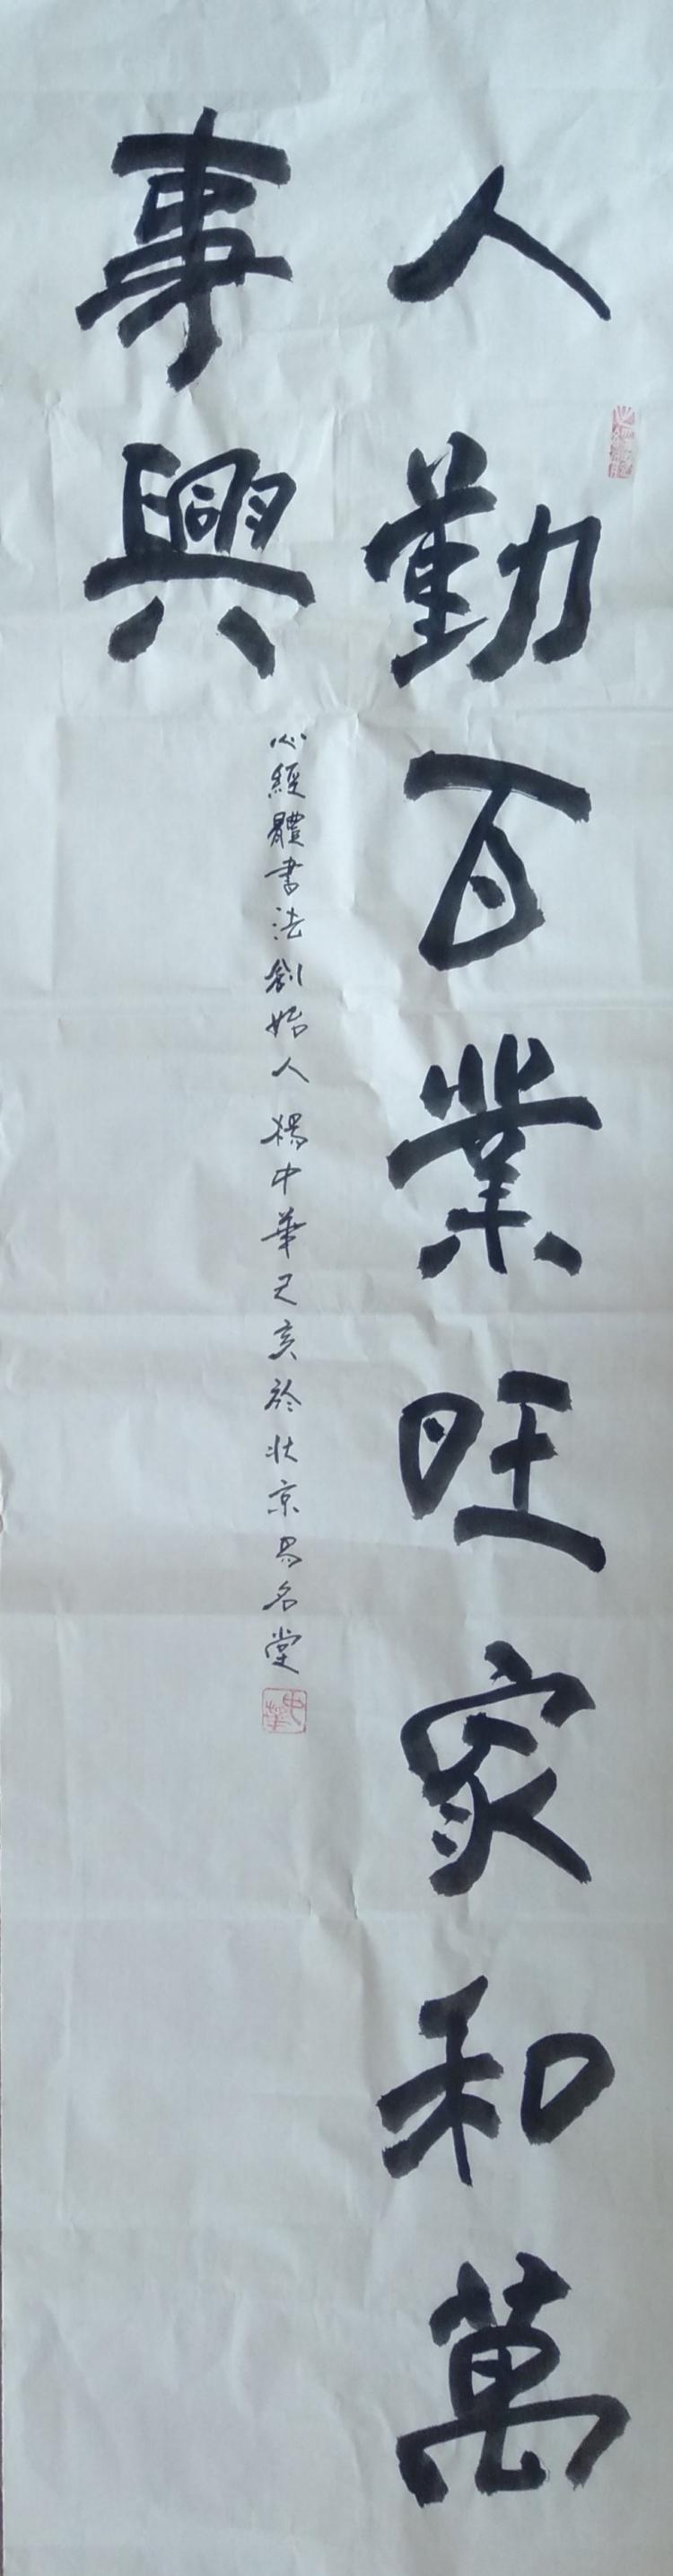 人勤百業旺家和萬
事興
心經體書法創始人楊中華己亥於北京易名堂
中華